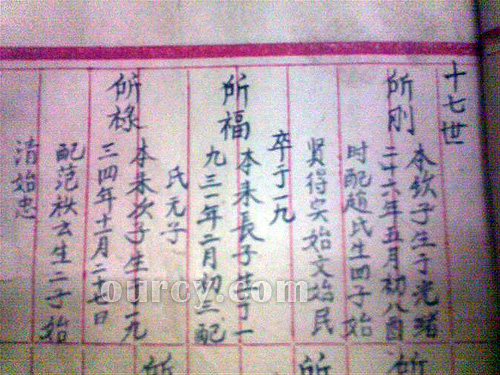 十七世
所刚
本钦子生于光绪
二十六年五月初八酉
时配趙氏生四子始
贤得实始文始民
卒于一九
所福
本来長子生于一
九三一年二月初三配
氏元子
所禄
本来次子生于一九
三四年十一月二十七日
配范秩云生二子始
清始忠
所
所
所
ourcy.com